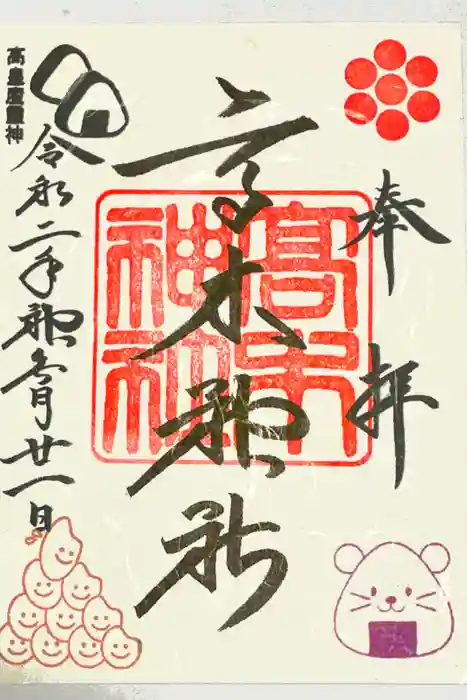 奉拝
高木神社
高木神社
令和二年神無月廿一日
高皇産靈神